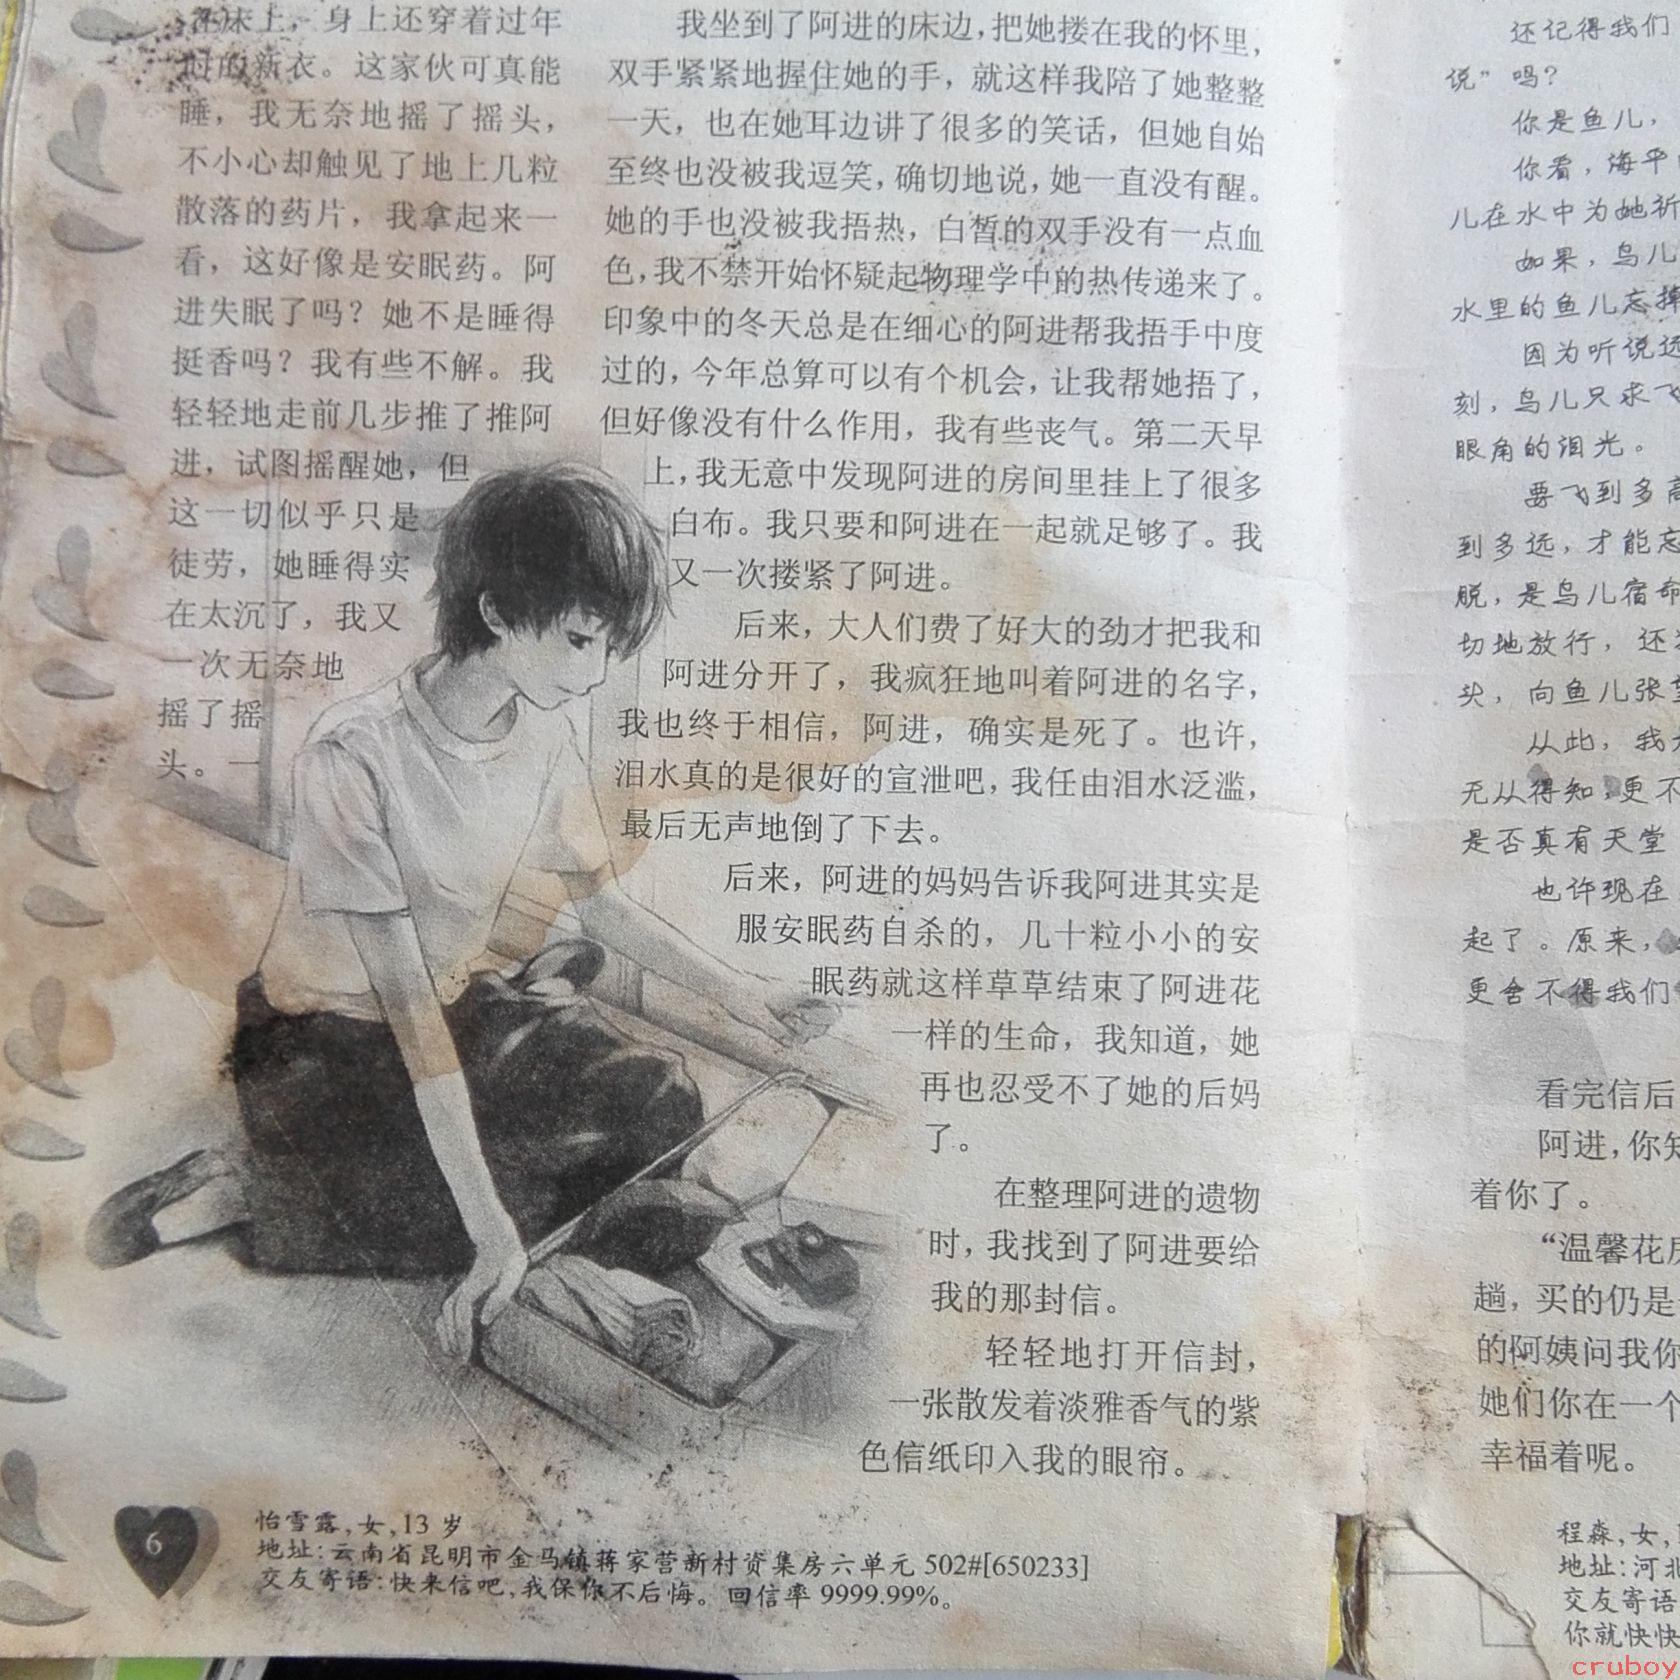 在床上，身上还穿着过年
时的新衣。这家伙可真能
睡，我无奈地摇了摇头，
不小心却触见了地上几粒
散落的药片，我拿起来一
看，这好像是安眠药。阿
进失眠了吗？她不是睡得
挺香吗？我有些不解。我
轻轻地走前几步推了推阿
进，试图摇醒她，但
这一切似乎只是
徒劳，她睡得实
在太沉了，我又
一次无奈地
摇了摇
头。一
我坐到了阿进的床边，把她搂在我的怀里，
双手紧紧地握住她的手，就这样我陪了她整整
一天，也在她耳边讲了很多的笑话，但她自始
至终也没被我逗笑，确切地说，她一直没有醒。
她的手也没被我捂热，白皙的双手没有一点血
色，我不禁开始怀疑起物理学中的热传递来了。
印象中的冬天总是在细心的阿进帮我捂手中度
过的，今年总算可以有个机会，让我帮她捂了，
但好像没有什么作用，我有些丧气。第二天早
上，我无意中发现阿进的房间里挂上了很多
白布。我只要和阿进在一起就足够了。我
又一次搂紧了阿进。
后来，大人们费了好大的劲才把我和
阿进分开了，我疯狂地叫着阿进的名字，
我也终于相信，阿进，确实是死了。也许，
泪水真的是很好的宣泄吧，我任由泪水泛滥，
最后无声地倒了下去。
后来，阿进的妈妈告诉我阿进其实是
服安眠药自杀的，几十粒小小的安
眠药就这样草草结束了阿进花
一样的生命，我知道，她
再也忍受不了她的后妈
了。
在整理阿进的遗物
时，我找到了阿进要给
我的那封信。
轻轻地打开信封，
一张散发着淡雅香气的紫
色信纸印入我的眼帘。
6
怡雪露，女，13岁
地址：云南省昆明市金马镇蒋家营新村资集房六单元502#[650233]
交友寄语：快来信吧，我保你不后悔。回信率9999.99%。
还记得我们
说”吗？
你是鱼儿，
你看，海平
儿在水中为她祈
如果，鸟儿
水里的鱼儿忘掉
因为听说远
刻，鸟儿只求飞
眼角的泪光。
要飞到多高
到多远，才能忘
脱，是鸟儿宿命
切地放行，还
头，向鱼儿张望
从此，我
无从得知，更不
是否真有天堂
也许现在
起了。原来，
更舍不得我们
看完信后
阿进，你知
着你了。
“温馨花房
趟，买的仍是
的阿姨问我你
她们你在一个
幸福着呢。
程森，女，
地址：河北
交友寄语
你就快快
cruboy